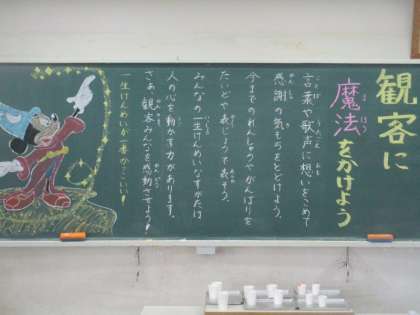 観客に
魔法をかけよう
言葉や歌声に想いをこめて
感謝の気もちをとどけよう。
今までのれんしゅうやがんばりを
たいどや表じょうで表そう。
みんなの一生けんめいなすがたは
人の心を動かす力があります。
さあ、観客みんなを感動させよう!
一生けんめいが一番かっこいい!